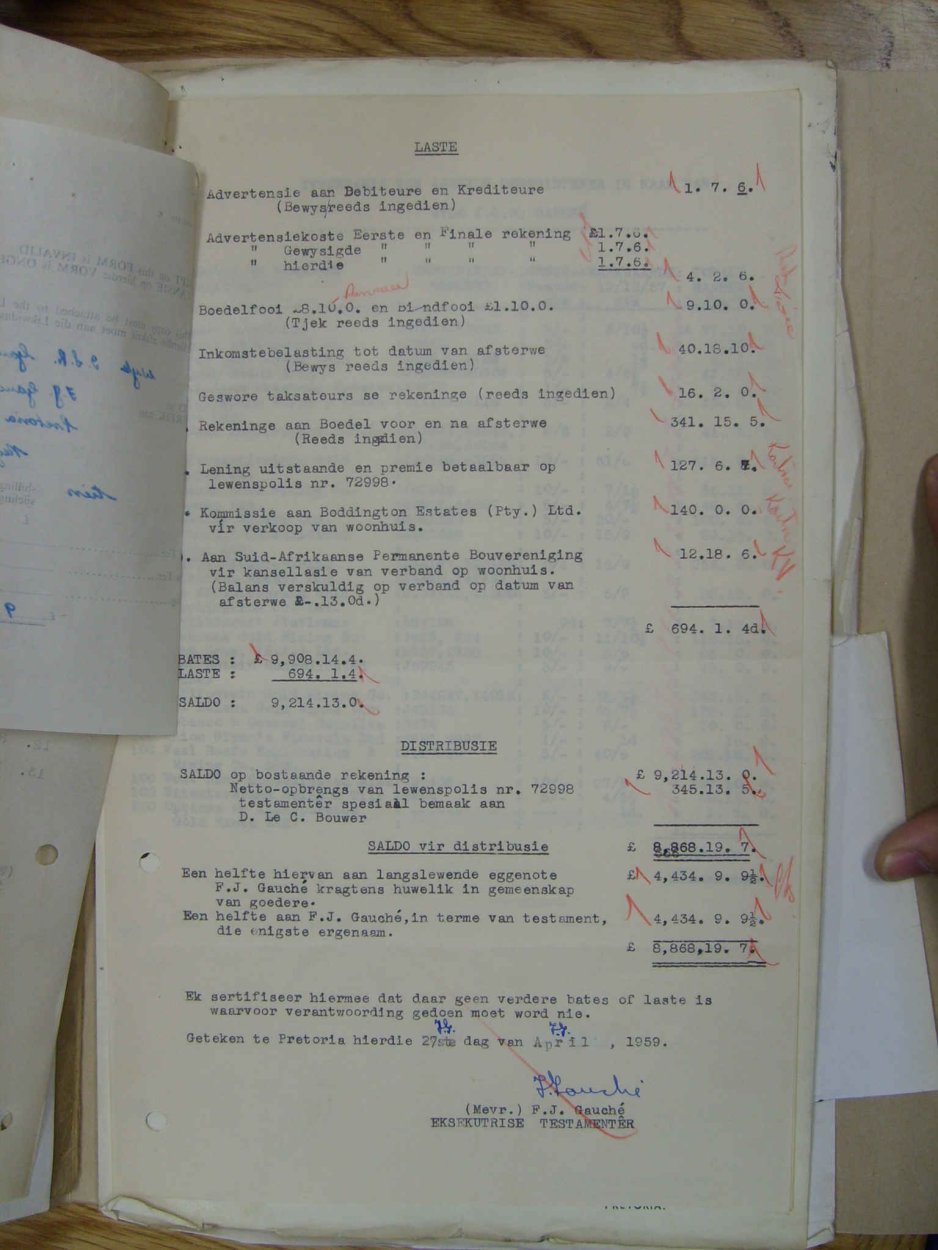 LASTE
Advertensie aan Debiteure en Krediteure 1. 7. 6.
(Bewys reeds ingedien)
Advertensiekoste Eerste en Finale rekening £1.7.6.
" Gewysigde " " " " 1.7.6.
" hierdie " " " " 1.7.6.
4. 2. 6.
Boedelfooi £8.10.0. en bindfooi £1.10.0. 9.10. 0.
(Tjek reeds ingedien)
Inkomstebelasting tot datum van afsterwe 40.18.10.
(Bewys reeds ingedien)
Geswore taksateurs se rekeninge (reeds ingedien) 16. 2. 0.
Rekeninge aan Boedel voor en na afsterwe 341. 15. 5.
(Reeds ingedien)
Lening uitstaande en premie betaalbaar op 127. 6. 7.
lewenspolis nr. 72998.
Kommissie aan Boddington Estates (Pty.) Ltd. 140. 0. 0.
vir verkoop van woonhuis.
Aan Suid-Afrikaanse Permanente Bouvereniging 12.18. 6.
vir kansellasie van verband op woonhuis.
(Balans verskuldig op verband op datum van
afsterwe £-.13.0d.)
£ 694. 1. 4d.
BATES : £ 9,908.14.4.
LASTE : 694. 1.4.
SALDO : 9,214.13.0.
DISTRIBUSIE
SALDO op bostaande rekening : £ 9,214.13. 0.
Netto-opbrengs van lewenspolis nr. 72998 345.13. 5.
testamentêr spesiaal bemaak aan
D. Le C. Bouwer
SALDO vir distribusie £ 8,868.19. 7.
Een helfte hiervan aan langslewende eggenote £ 4,434. 9. 9½.
F.J. Gauché kragtens huwelik in gemeenskap
van goedere.
Een helfte aan F.J. Gauché,in terme van testament, 4,434. 9. 9½.
die enigste ergenaam.
£ 8,868,19. 7.
Ek sertifiseer hiermee dat daar geen verdere bates of laste is
waarvoor verantwoording gedoen moet word nie.
Geteken te Pretoria hierdie 27ste dag van April , 1959.
F.J. F.J.
F.Gauché
(Mevr.) F.J. Gauché
EKSEKUTRISE TESTAMENTÊR
PRETORIA.